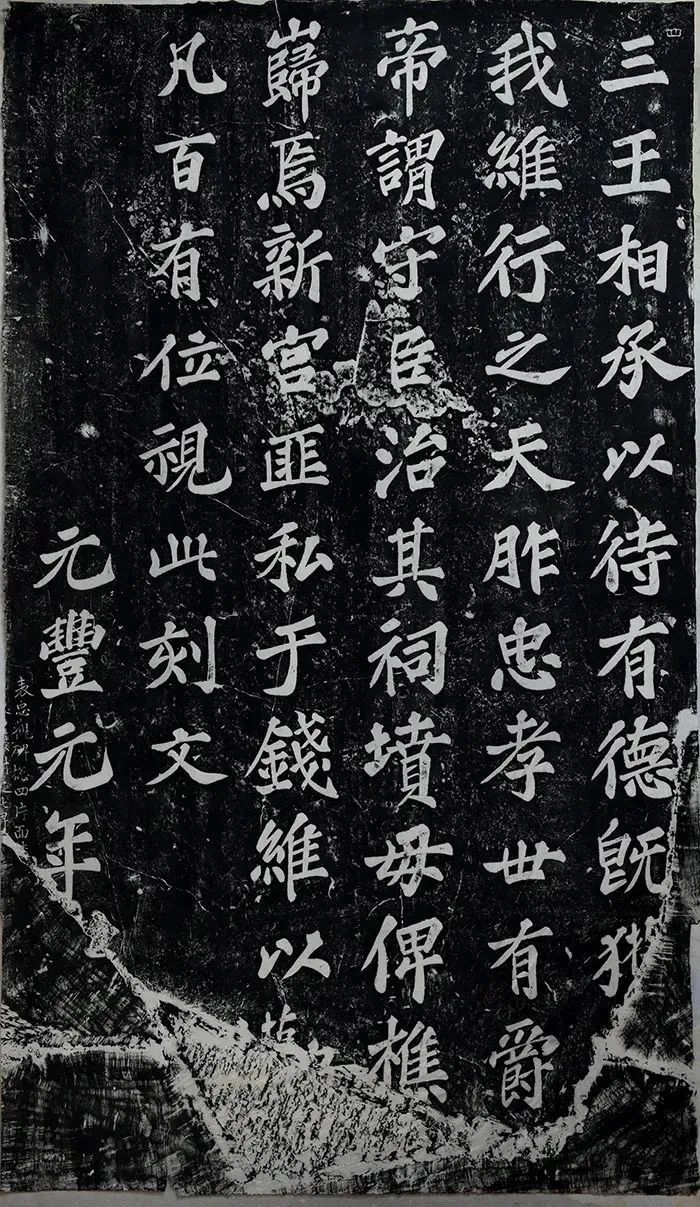 三王相承以待有德既
我維行之天胙忠孝世有爵
帝謂守臣治其祠墳毋俾樵
巋焉新宮匪私于錢維以
凡百有位視此刻文
元豐元年
表忠四片面